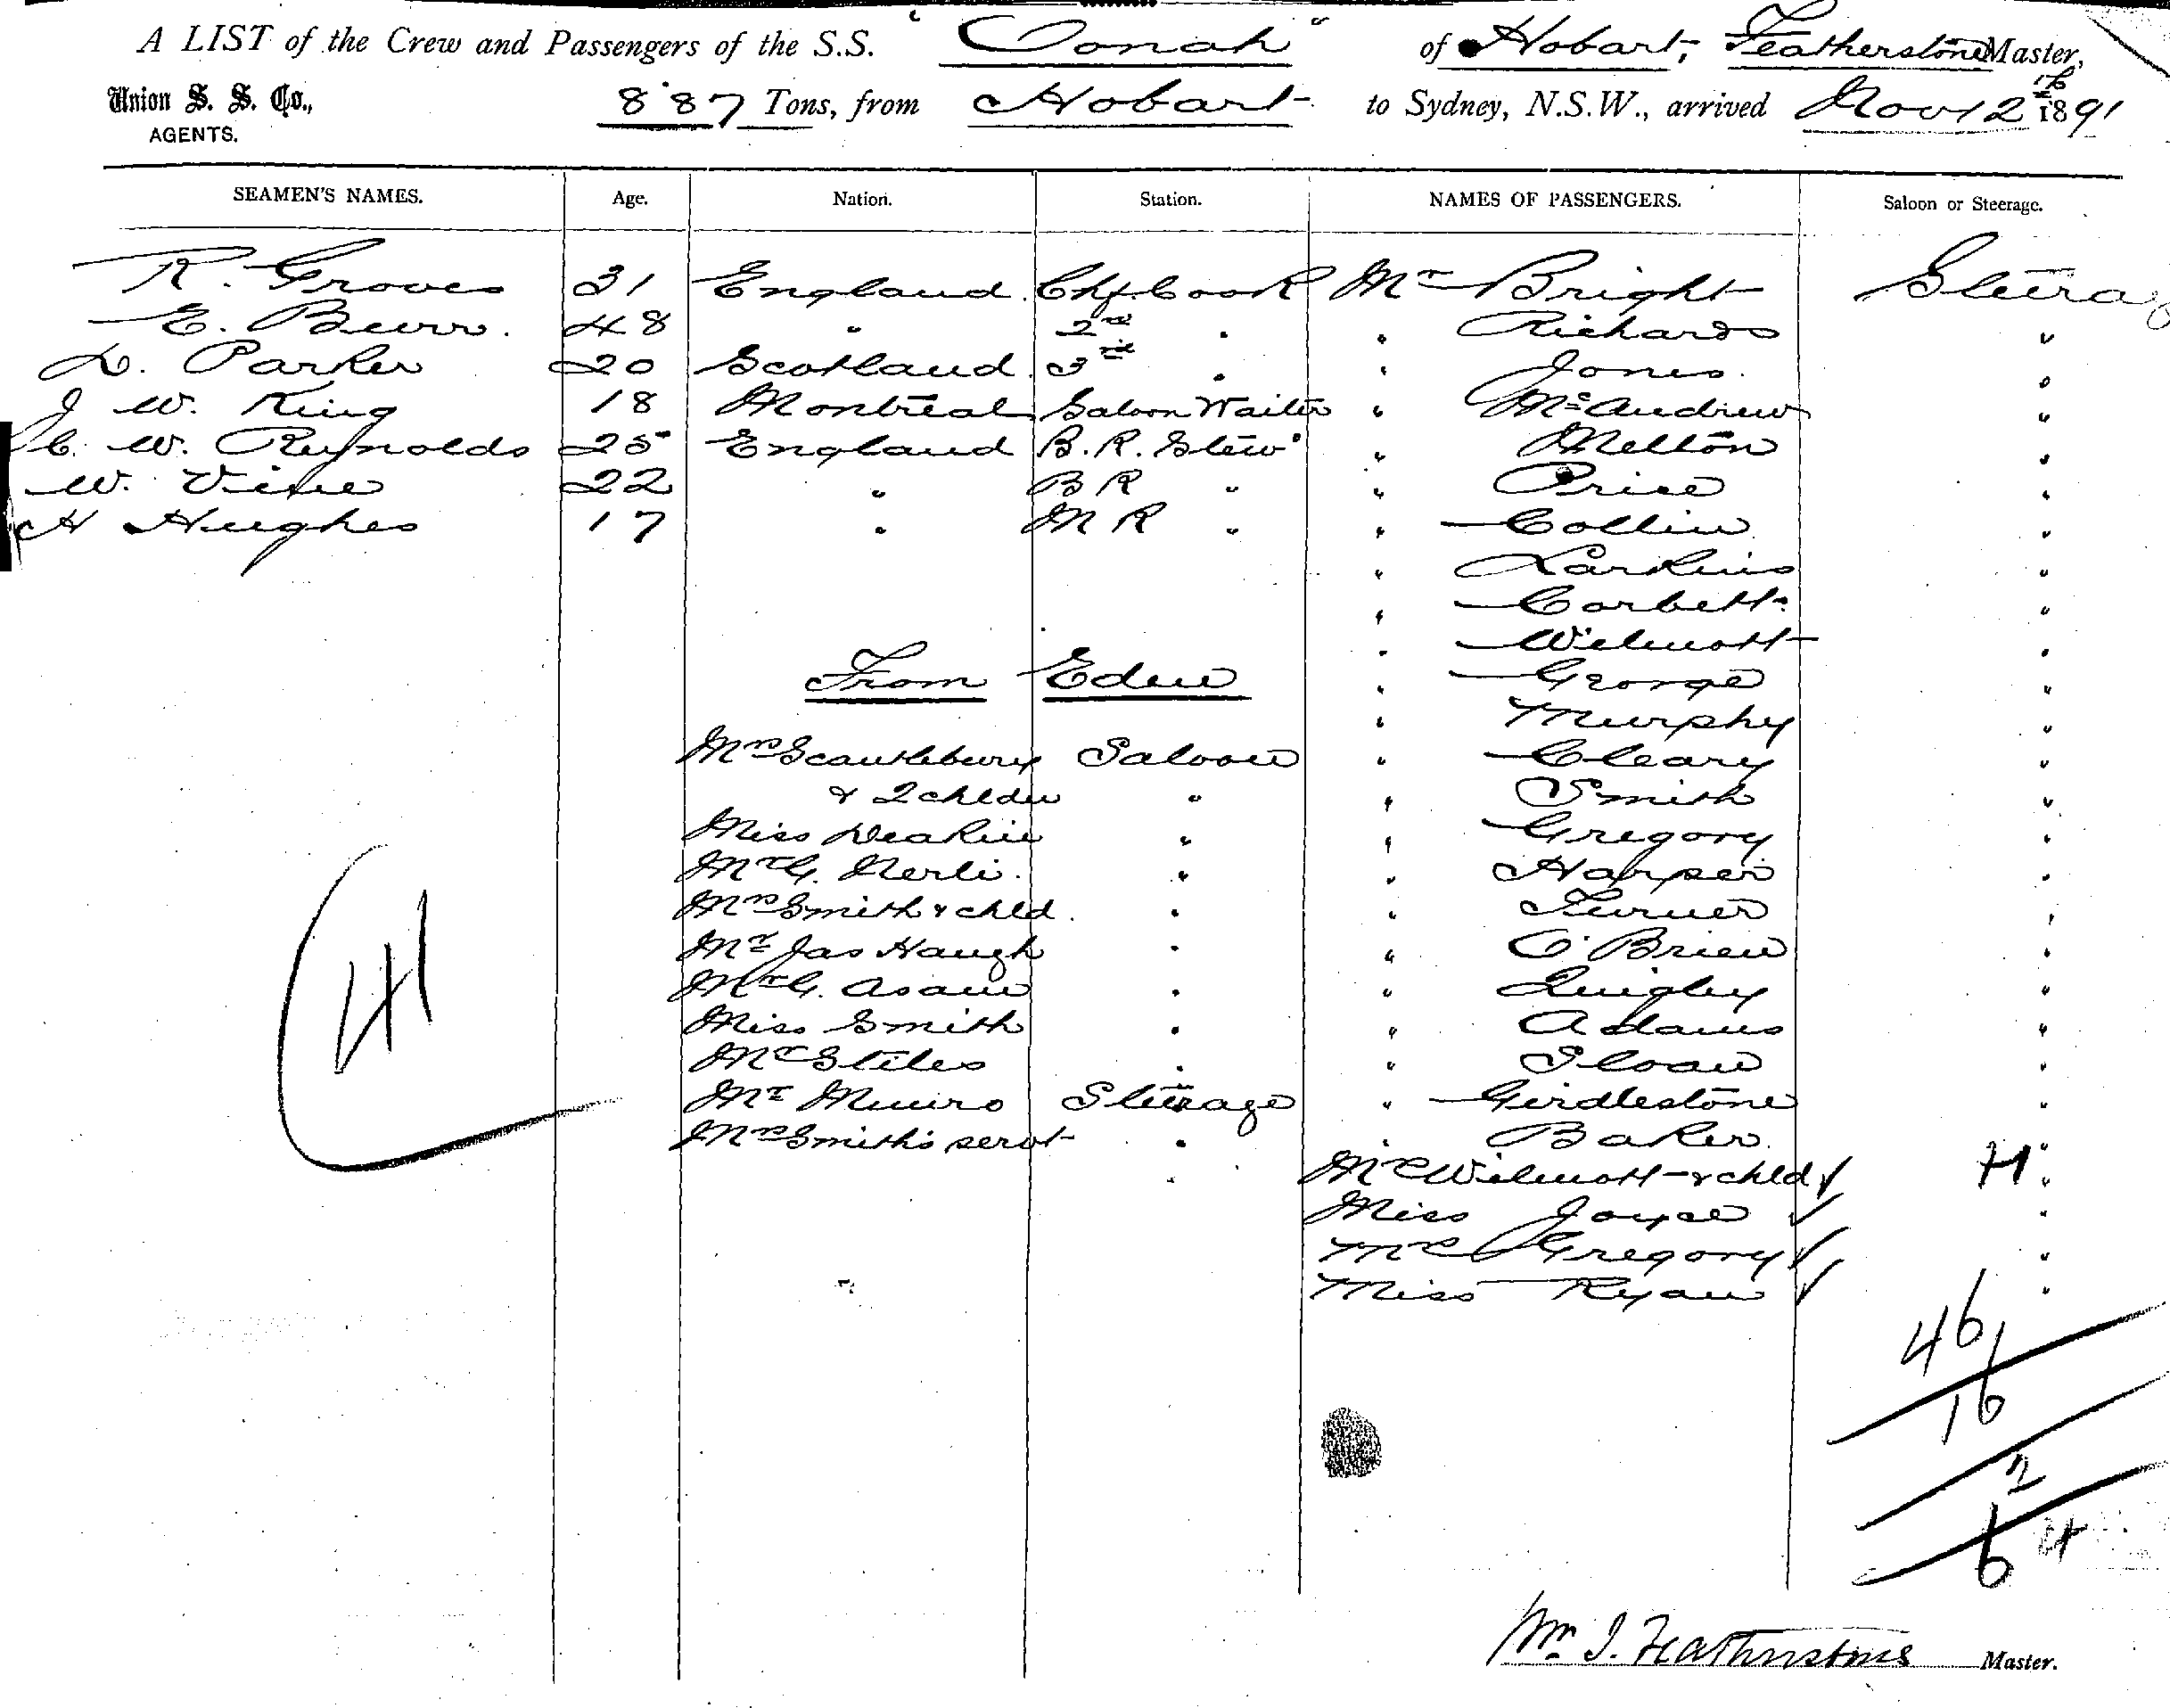 A LIST of the Crew and Passengers of the S.S. "Oonah" of Hobart, Featherstone Master,
Union S. S. Co., 887 Tons, from Hobart to Sydney, N.S.W., arrived Nov 12th 1891
AGENTS.
SEAMEN'S NAMES. Age. Nation. Station. NAMES OF PASSENGERS. Saloon or Steerage.
R. Groves 31 England Chf. Cook Mr Bright Steerag
E. Burr. 48 " 2nd " " Richards "
D. Parker 20 Scotland 3rd " " Jones "
J W. King 18 Montreal Saloon Waiter " McAndrew "
C. W. Reynolds 25 England B.R. Stew " Melton "
W. Vine 22 " B R " " Price "
H Hughes 17 " M R " " Collin "
" Larkins "
" Corbett "
" Wilmott "
From Eden " George "
" Murphy "
Mrs Scantlebury Saloon " Cleary "
& 2 chldn " " Smith "
Miss Deakin " " Gregory "
Mr G. Nerli " " Harper "
Mrs Smith & chld. " " Turner "
Mr Jas Haugh " " O'Brien "
Mr G. Asam " " Quigley "
Miss Smith " " Adams "
41
Mr Stiles " " Sloan "
Mr Munro Steerage " Girdlestone "
Mrs Smith's servt " " Baker "
Mrs Wilmott & chld "
Miss Joyce "
Mrs Gregory "
Miss Ryan "
46
16
2
64
Wm. J. Featherstone Master.